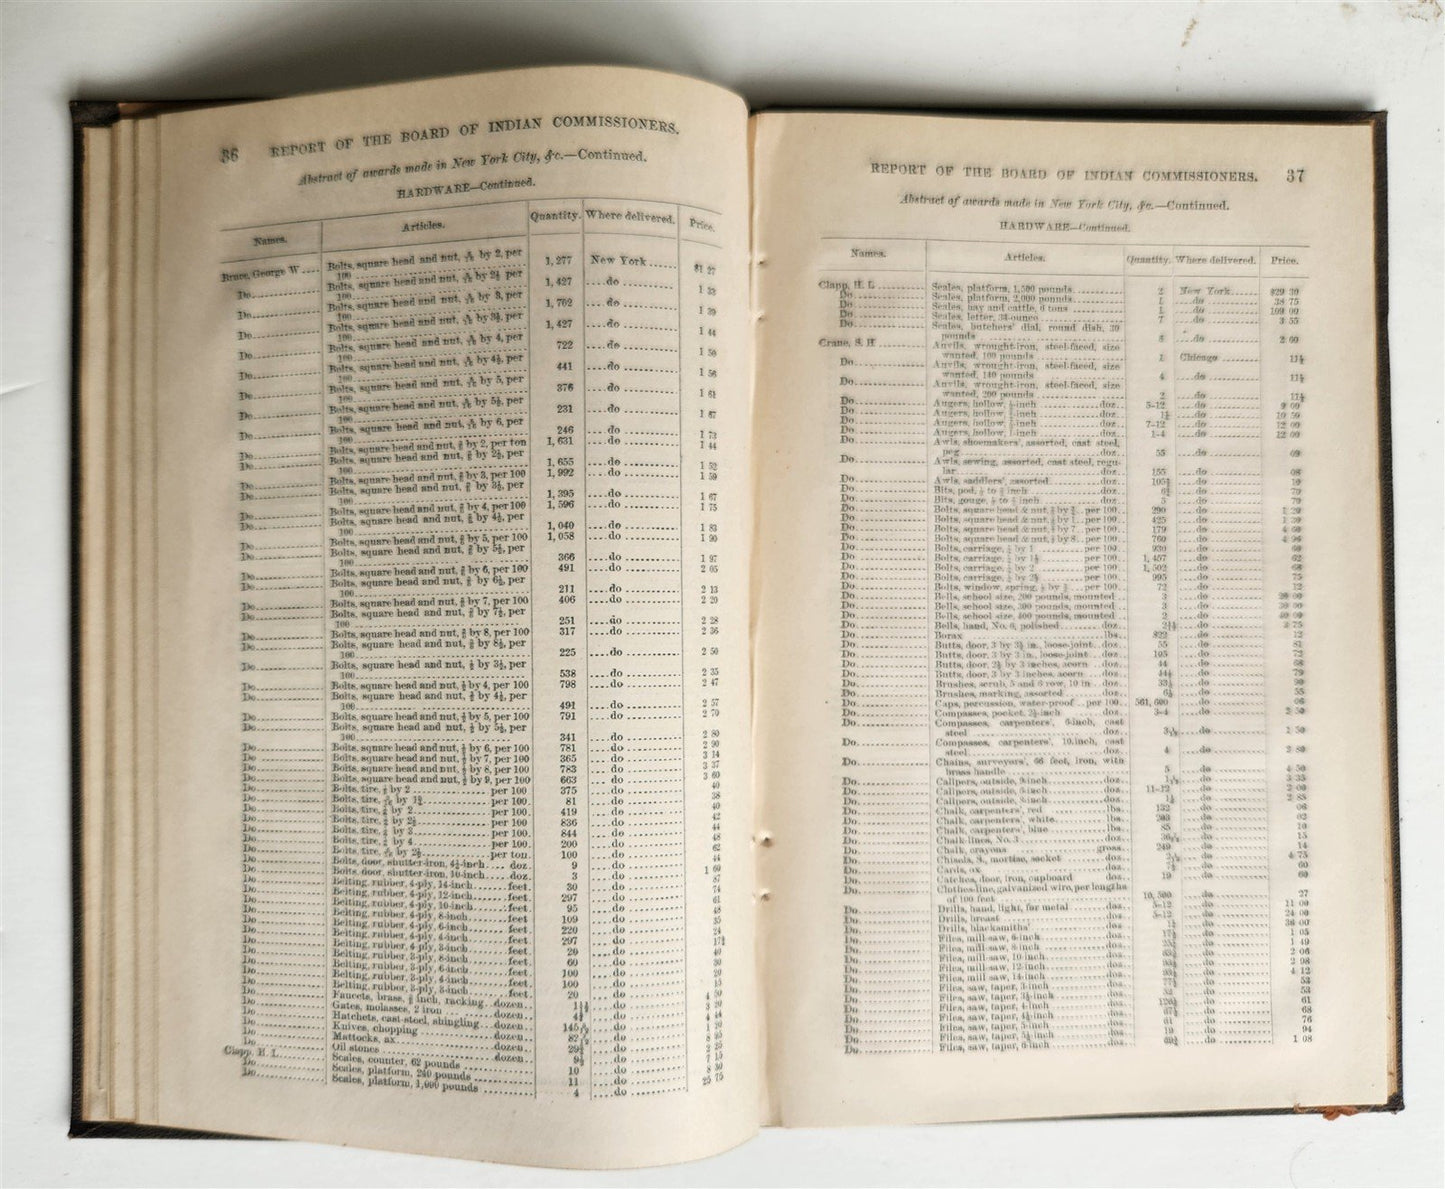 36 REPORT OF THE BOARD OF INDIAN COMMISSIONERS.
Abstract of awards made in New York City, &c.—Continued.
HARDWARE—Continued.
Names. Articles. Quantity. Where delivered. Price.
Bruce, George W .... Bolts, square head and nut, by 2, per 100 1,277 New York ...... $1 27
Do. Bolts, square head and nut, by 2½, per 100 1,427 ....do
Do. Bolts, square head and nut, by 3, per 100 1,762 ....do 1 39
Do. Bolts, square head and nut, by 3½, per 100 1,427 ....do 1 44
Do. Bolts, square head and nut, by 4, per 100 722 ....do 1 50
Do. Bolts, square head and nut, by 4½, per 100 441 ....do 1 56
Do. Bolts, square head and nut, by 5, per 100 376 ....do 1 61
Do. Bolts, square head and nut, by 5½, per 100 231 ....do 1 67
Do. Bolts, square head and nut, by 6, per 100 246 ....do 1 73
Do. Bolts, square head and nut, by 2, per ton 1,631 ....do 1 44
Do. Bolts, square head and nut, by 2½, per 100 1,655 ....do 1 52
Do. Bolts, square head and nut, by 3, per 100 1,992 ....do 1 59
Do. Bolts, square head and nut, by 3½, per 100 1,395 ....do 1 67
Do. Bolts, square head and nut, by 4, per 100 1,596 ....do 1 75
Do. Bolts, square head and nut, by 4½, per 100 1,040 ....do 1 83
Do. Bolts, square head and nut, by 5, per 100 1,058 ....do 1 90
Do. Bolts, square head and nut, by 5½, per 100 366 ....do 1 97
Do. Bolts, square head and nut, by 6, per 100 491 ....do 2 05
Do. Bolts, square head and nut, by 6½, per 100 211 ....do 2 13
Do. Bolts, square head and nut, by 7, per 100 406 ....do 2 20
Do. Bolts, square head and nut, by 7½, per 100 251 ....do 2 28
Do. Bolts, square head and nut, by 8, per 100 317 ....do 2 36
Do. Bolts, square head and nut, by 8½, per 100 225 ....do 2 50
Do. Bolts, square head and nut, ½ by 3½, per 100 538 ....do 2 35
Do. Bolts, square head and nut, ½ by 4, per 100 798 ....do 2 47
Do. Bolts, square head and nut, ½ by 4½, per 100 491 ....do 2 57
Do. Bolts, square head and nut, ½ by 5, per 100 791 ....do 2 70
Do. Bolts, square head and nut, ½ by 5½, per 100 341 ....do 2 80
Do. Bolts, square head and nut, ½ by 6, per 100 781 ....do 2 90
Do. Bolts, square head and nut, ½ by 7, per 100 365 ....do 3 14
Do. Bolts, square head and nut, ½ by 8, per 100 783 ....do 3 37
Do. Bolts, square head and nut, ½ by 9, per 100 663 ....do 3 60
Do. Bolts, tire, by 2 per 100 375 ....do 40
Do. Bolts, tire, by per 100. 81 ....do 38
Do. Bolts, tire, by 2 per 100. 419 ....do 40
Do. Bolts, tire, by 2½ per 100 836 ....do 42
Do. Bolts, tire, by 3 per 100. 844 ....do 44
Do. Bolts, tire, by 4 per 100. 200 ....do 48
Do. Bolts, tire, by 2½ per ton. 100 ....do 62
Do. Bolts, door, shutter-iron, 4½-inch.... doz. 9 ....do 44
Do. Bolts, door, shutter-iron, 10-inch.... doz. 3 ....do 1 60
Do. Belting, rubber, 4-ply, 14-inch ....feet. 30 ....do 87
Do. Belting, rubber, 4-ply, 12-inch ....feet. 297 ....do 74
Do. Belting, rubber, 4-ply, 10-inch ....feet. 95 ....do 61
Do. Belting, rubber, 4-ply, 8-inch ....feet. 109 ....do 48
Do. Belting, rubber, 4-ply, 6-inch ....feet. 220 ....do 35
Do. Belting, rubber, 4-ply, 4-inch ....feet. 297 ....do 24
Do. Belting, rubber, 4-ply, 3-inch ....feet. 20 ....do 17½
Do. Belting, rubber, 3-ply, 8-inch ....feet. 60 ....do 40
Do. Belting, rubber, 3-ply, 6-inch ....feet. 100 ....do 30
Do. Belting, rubber, 3-ply, 4-inch ....feet. 100 ....do 20
Do. Belting, rubber, 3-ply, 3-inch ....feet. 20 ....do 15
Do. Faucets, brass, inch, racking ..dozen. ....do 4 50
Do. Gates, molasses, 2 iron ....dozen. ....do 3 20
Do. Hatchets, cast-steel, shingling ..dozen. ....do 4 44
Do. Knives, chopping ....dozen. ....do 1 20
Do. Mattocks, ax ....dozen. ....do
Do. Oil stones ....dozen. ....do
Clapp, H. L. Scales, counter, 62 pounds 10 ....do
Do. Scales, platform, 240 pounds 11 ....do 8 30
Do. Scales, platform, 1,000 pounds 4 ....do 25 75
REPORT OF THE BOARD OF INDIAN COMMISSIONERS. 37
Abstract of awards made in New York City, &c.—Continued.
HARDWARE—Continued.
Names. Articles. Quantity. Where delivered. Price.
Clapp, H. L. Scales, platform, 1,500 pounds 2 New York $29 30
Do. Scales, platform, 2,000 pounds 1 do 38 75
Do. Scales, hay and cattle, 6 tons 1 do 109 00
Do. Scales, letter, ounce 7 do 3 55
Do. Scales, butchers' dial, round dish, 30 pounds do 2 60
Crane, S. H. Anvils, wrought-iron, steel-faced, size wanted, 100 pounds 1 Chicago 11½
Do. Anvils, wrought-iron, steel-faced, size wanted, 140 pounds 4 do 11½
Do. Anvils, wrought-iron, steel-faced, size wanted, 200 pounds 2 do 11½
Do. Augers, hollow, inch doz. 5-12 do 9 00
Do. Augers, hollow, inch doz. do 10 50
Do. Augers, hollow, inch doz. 7-12 do 12 00
Do. Augers, hollow, inch doz. 1-4 do 12 00
Do. Awls, shoemakers', assorted, cast steel, peg doz. 55 do 09
Do. Awls, sewing, assorted, cast steel, regular doz. 155 do 08
Do. Awls, saddlers', assorted doz. do 10
Do. Bits, pod, to inch doz. do 70
Do. Bits, gouge, to inch doz. 5 do 70
Do. Bolts, square head & nut, by per 100 290 do 1 20
Do. Bolts, square head & nut, by 1 per 100 425 do 1 30
Do. Bolts, square head & nut, by 7 per 100 179 do 4 60
Do. Bolts, square head & nut, by 8 per 100 760 do 4 96
Do. Bolts, carriage, by 1 per 100 930 do 60
Do. Bolts, carriage, by 1½ per 100 1,457 do 62
Do. Bolts, carriage, by 2 per 100 1,502 do 68
Do. Bolts, carriage, by 2½ per 100 995 do 75
Do. Bolts, window, spring, by per 100 72 do 12
Do. Bells, school size, 200 pounds, mounted 3 do 20 00
Do. Bells, school size, 300 pounds, mounted 3 do 30 00
Do. Bells, school size, 400 pounds, mounted 2 do 40 00
Do. Bells, hand, No. 8, polished doz. do 3 75
Do. Borax lbs. 822 do 12
Do. Butts, door, 3 by 3½ in., loose-joint doz. 55 do 81
Do. Butts, door, 3 by 3 in., loose-joint doz. 105 do 72
Do. Butts, door, 2½ by 3 inches, acorn doz. 44 do 68
Do. Butts, door, 3 by 3 inches, acorn doz. do 79
Do. Brushes, scrub, 5 and 6 row, 10 in doz. do 90
Do. Brushes, marking, assorted doz. do 55
Do. Caps, percussion, water-proof per 100. 561,600 do 06
Do. Compasses, pocket, inch doz. 3-4 do 2 50
Do. Compasses, carpenters', 6-inch, cast steel doz. do 1 50
Do. Compasses, carpenters', 10-inch, cast steel doz. 4 do 2 80
Do. Chains, surveyors', 66 feet, iron, with brass handle 5 do 4 50
Do. Calipers, outside, inch doz. do 3 35
Do. Calipers, outside, inch doz. 11-12 do 2 00
Do. Calipers, outside, 8-inch doz. do 2 88
Do. Chalk, carpenters', red lbs. 132 do 06
Do. Chalk, carpenters', white lbs. 203 do 02
Do. Chalk, carpenters', blue lbs. 85 do 10
Do. Chalk-lines, No. 3 doz. do 15
Do. Chalk, crayons gross. 249 do 14
Do. Chisels, mortise, socket doz. do 4 75
Do. Cards, ox doz. do 60
Do. Catches, door, iron, cupboard doz. 19 do 60
Do. Clothes-line, galvanized wire, per lengths of 100 feet 10,500 do 27
Do. Drills, hand, light, for metal doz. 5-12 do 11 00
Do. Drills, breast doz. 5-12 do 24 00
Do. Drills, blacksmiths' doz. do
Do. Files, mill-saw, 6-inch doz. do 1 05
Do. Files, mill-saw, 8-inch doz. do 1 49
Do. Files, mill-saw, 10-inch doz. do 2 06
Do. Files, mill-saw, 12-inch doz. do 2 98
Do. Files, mill-saw, 14-inch doz. do 4 12
Do. Files, saw, taper, 3-inch doz. do 53
Do. Files, saw, taper, 3½-inch doz. do 53
Do. Files, saw, taper, 4-inch doz. do 61
Do. Files, saw, taper, 4½-inch doz. do 68
Do. Files, saw, taper, 5-inch doz. do 76
Do. Files, saw, taper, 5½-inch doz. 19 do 94
Do. Files, saw, taper, 6-inch doz. do 1 08